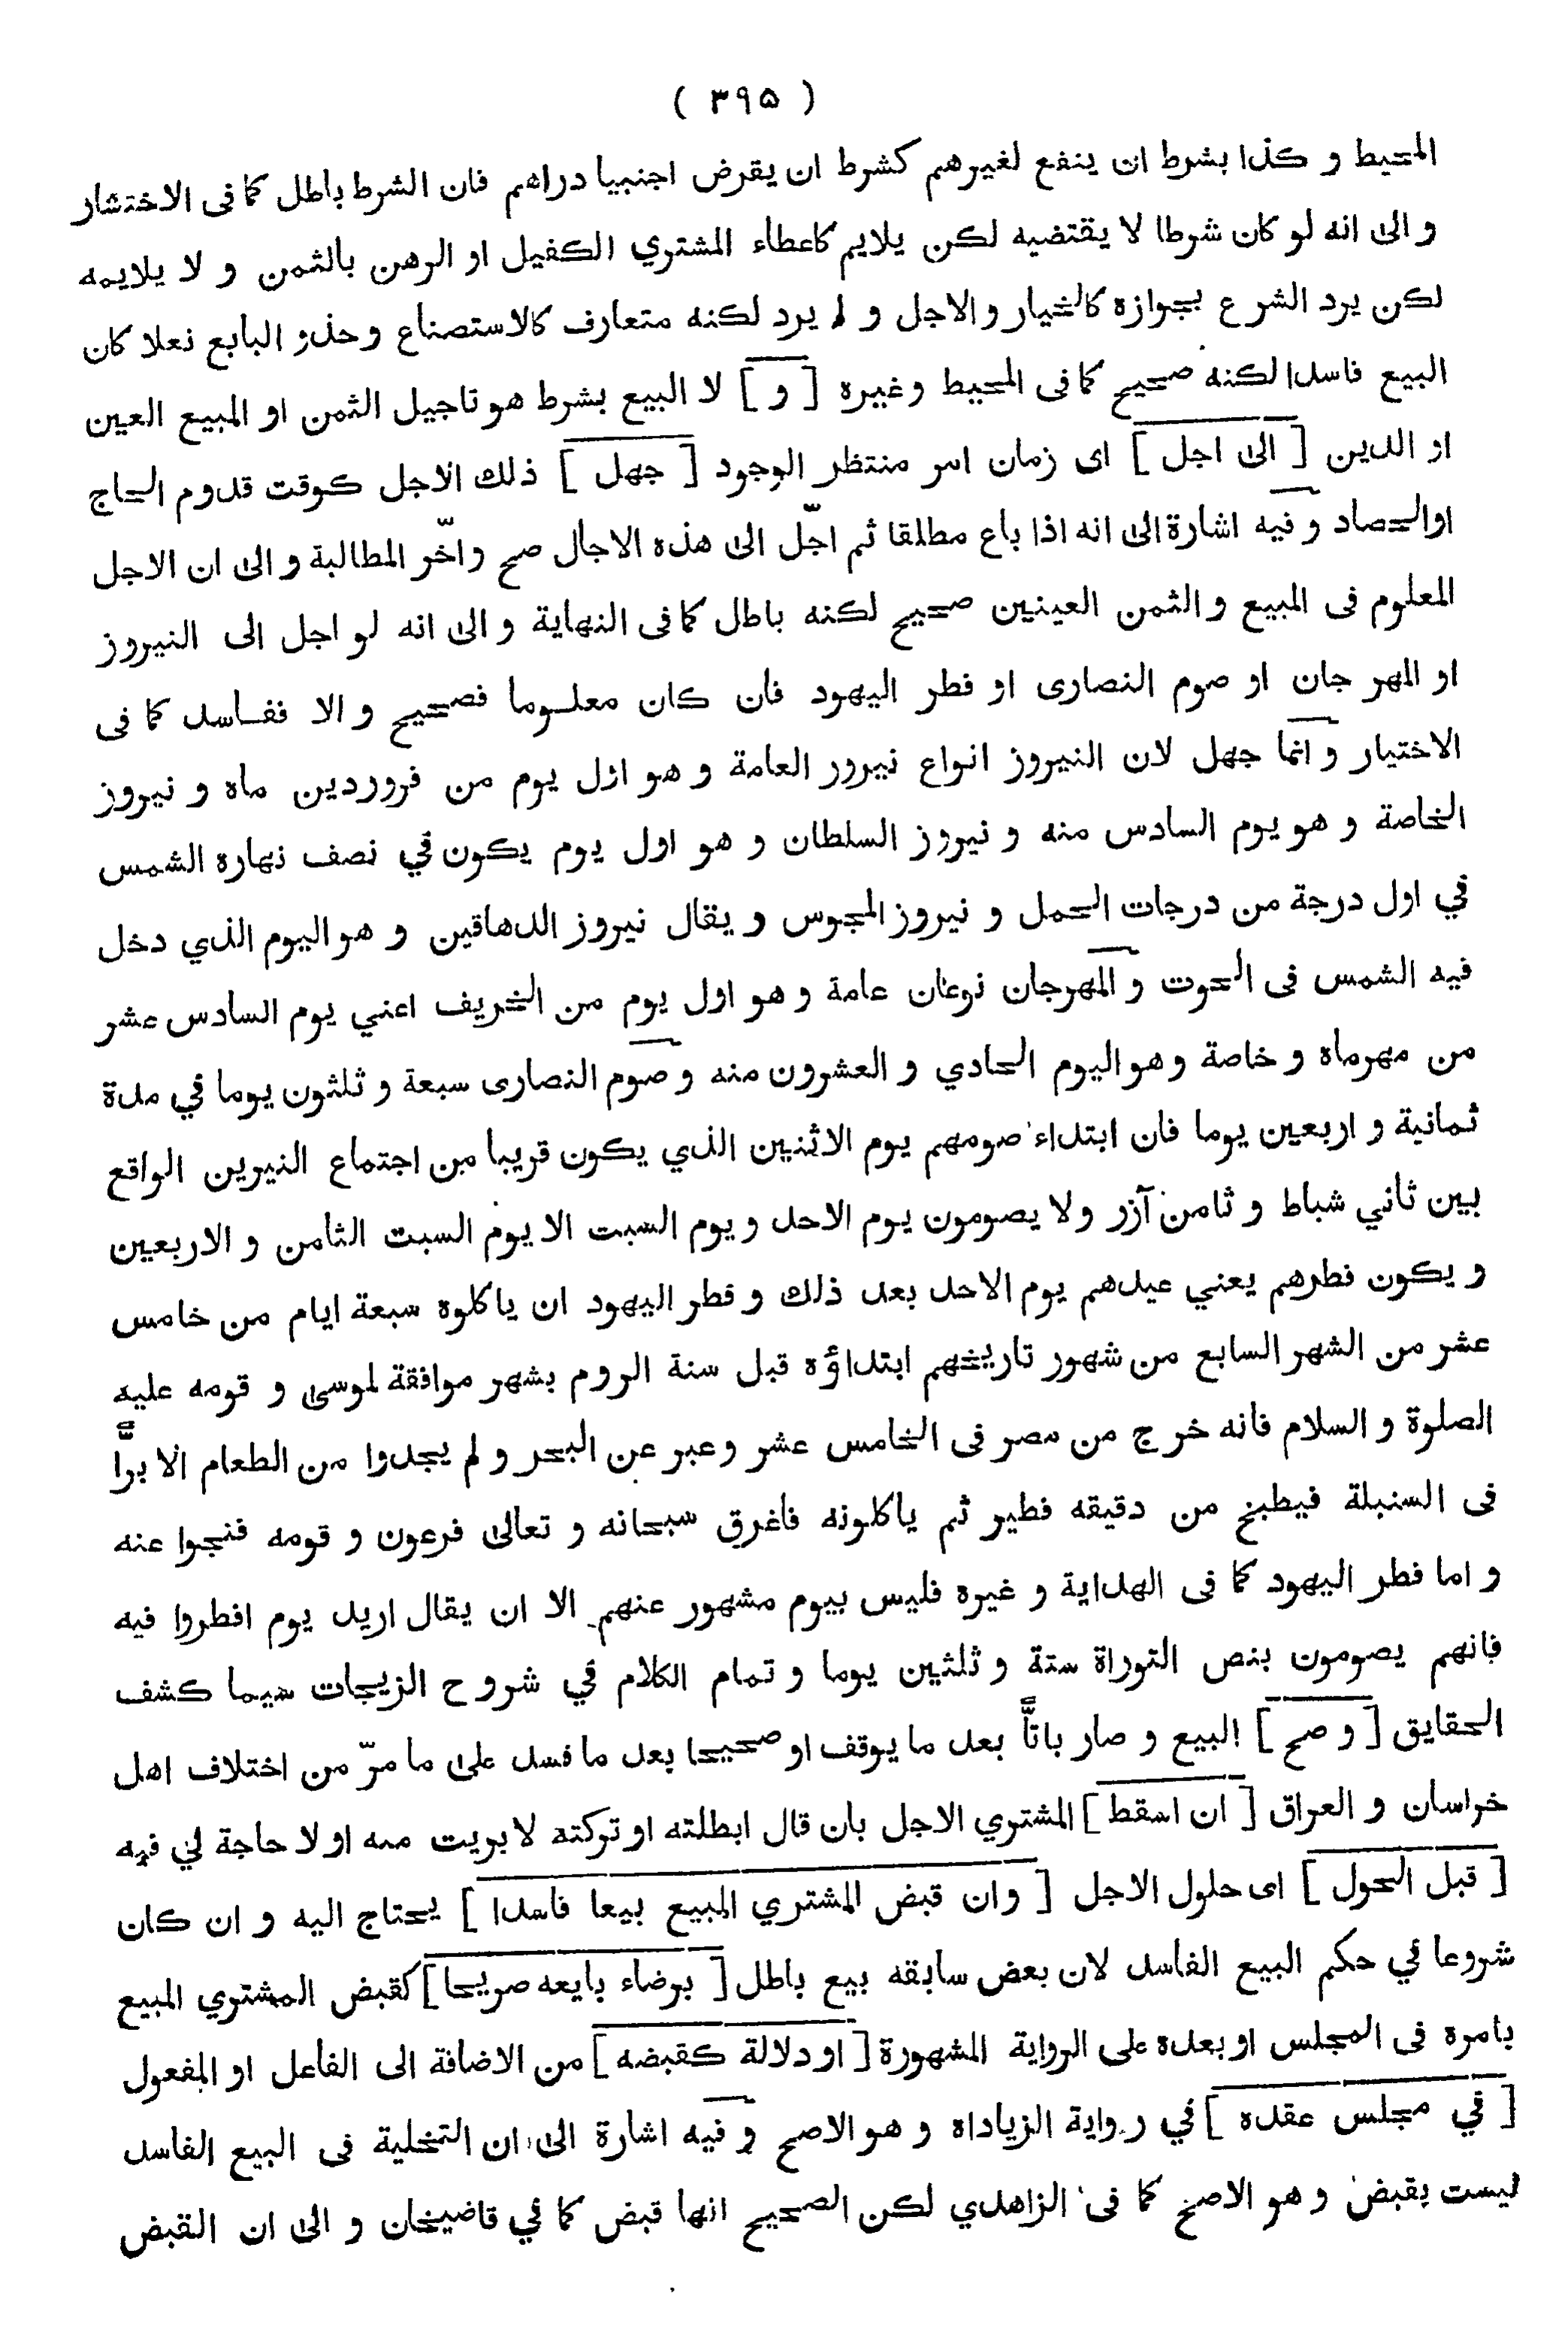 ( ٣٩٥ )
المحيط و كذا بشرط ان ينفع لغيرهم كشرط ان يقرض اجنبيا دراهم فان الشرط باطل كما فى الاختشار
و الى انه لو كان شرطا لا يقتضيه لكن يلايم كاعطاء المشتري الكفيل او الرهن بالثمن و لا يلايمه
لكن يرد الشرع بجوازه كالخيار والاجل و لم يرد لكنه متعارف كالاستصناع وحذو البايع نعلا كان
البيع فاسدا لكنه صحيح كما فى المحيط وغيره [ و ] لا البيع بشرط هو تاجيل الثمن او المبيع العين
او الدين [ الى اجل ] اى زمان امر منتظر الوجود [ جهل ] ذلك الاجل كوقت قدوم الحاج
اوالحصاد و فيه اشارة الى انه اذا باع مطلقا ثم اجّل الى هذه الاجال صح و اخّر المطالبة و الى ان الاجل
المعلوم فى المبيع و الثمن العينين صحيح لكنه باطل كما فى النهاية و الى انه لو اجل الى النيروز
او المهر جان او صوم النصارى او فطر اليهود فان كان معلوما فصحيح و الا ففاسد كما فى
الاختيار و انما جهل لان النيروز انواع نيرور العامة و هو اول يوم من فروردين ماه و نيروز
الخاصة و هو يوم السادس منه و نيروز السلطان و هو اول يوم يكون في نصف نهاره الشمس
في اول درجة من درجات الحمل و نيروز المجوس و يقال نيروز الدهاقين و هو اليوم الذي دخل
فيه الشمس فى الحوت و المهرجان نوعان عامة و هو اول يوم من الخريف اعني يوم السادس عشر
من مهرماه و خاصة و هو اليوم الحادي و العشرون منه و صوم النصارى سبعة و ثلثون يوما في مدة
ثمانية و اربعين يوما فان ابتداء صومهم يوم الاثنين الذي يكون قريبا من اجتماع النيرين الواقع
بين ثاني شباط و ثامن آزر ولا يصومون يوم الاحد و يوم السبت الا يوم السبت الثامن و الاربعين
و يكون فطرهم يعني عيدهم يوم الاحد بعد ذلك و فطر اليهود ان ياكلوه سبعة ايام من خامس
عشر من الشهر السابع من شهور تاريخهم ابتداؤه قبل سنة الروم بشهر موافقة لموسى و قومه عليه
الصلوة و السلام فانه خرج من مصر فى الخامس عشر و عبر عن البحر و لم يجدوا من الطعام الا برًّا
فى السنبلة فيطبخ من دقيقه فطير ثم ياكلونه فاغرق سبحانه و تعالى فرعون و قومه فنجوا عنه
و اما فطر اليهود كما فى الهداية و غيره فليس بيوم مشهور عنهم الا ان يقال اريد يوم افطروا فيه
فانهم يصومون بنص التوراة ستة و ثلثين يوما و تمام الكلام في شروح الزيجات سيما كشف
الحقايق [ و صح ] البيع و صار باتًّا بعد ما يوقف او صحيحا بعد ما فسد على ما مرّ من اختلاف اهل
خراسان و العراق [ ان اسقط ] المشتري الاجل بان قال ابطلته او تركته لا بريت منه او لا حاجة لي فيه
[ قبل الحول ] اى حلول الاجل [ وان قبض المشتري المبيع بيعا فاسدا ] يحتاج اليه و ان كان
شروعا في حكم البيع الفاسد لان بعض سابقه بيع باطل [ برضاء بايعه صريحا ] كقبض المشتري المبيع
بامره فى المجلس او بعده على الرواية المشهورة [ او دلالة كقبضه ] من الاضافة الى الفاعل او المفعول
[ في مجلس عقده ] في رواية الزياداة و هو الاصح و فيه اشارة الى ان التخلية فى البيع الفاسد
ليست بقبض و هو الاصح كما فى الزاهدي لكن الصحيح انها قبض كما في قاضيخان و الى ان القبض